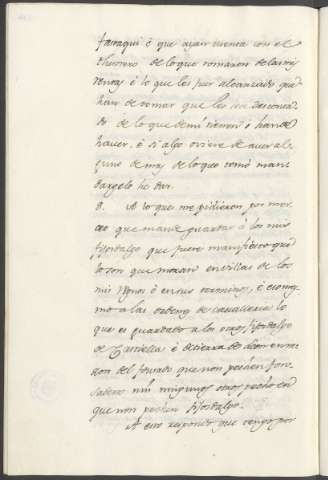 fasta aqui è que ayan cuenta con el
thesorero de lo que tomaron de las mis
rentas è lo que les fuer alcanzado que
han de tomar que les sea desconta
do de lo que de mi tienen ò han de
haver, è si algo oviere de aver al
guno de mas de lo que tomò man
dargelo he dar.
8. A lo que me pidieron por mer
ced que mande guardar à los mis
fijosdalgo que fuere manifiesto que
lo son que moran en villas de los
mis Regnos è en sus terminos, è eso mis
mo a las ordenes de cavalleria lo
que es guardado a los otros fijosdalgo
de Castiella è de tierra de Leon en ra
zon del forado que non pechen fon
sadera nin ningunos otros pechos en
que non pechan fijosdalgo.
A esto respondo que tengo por